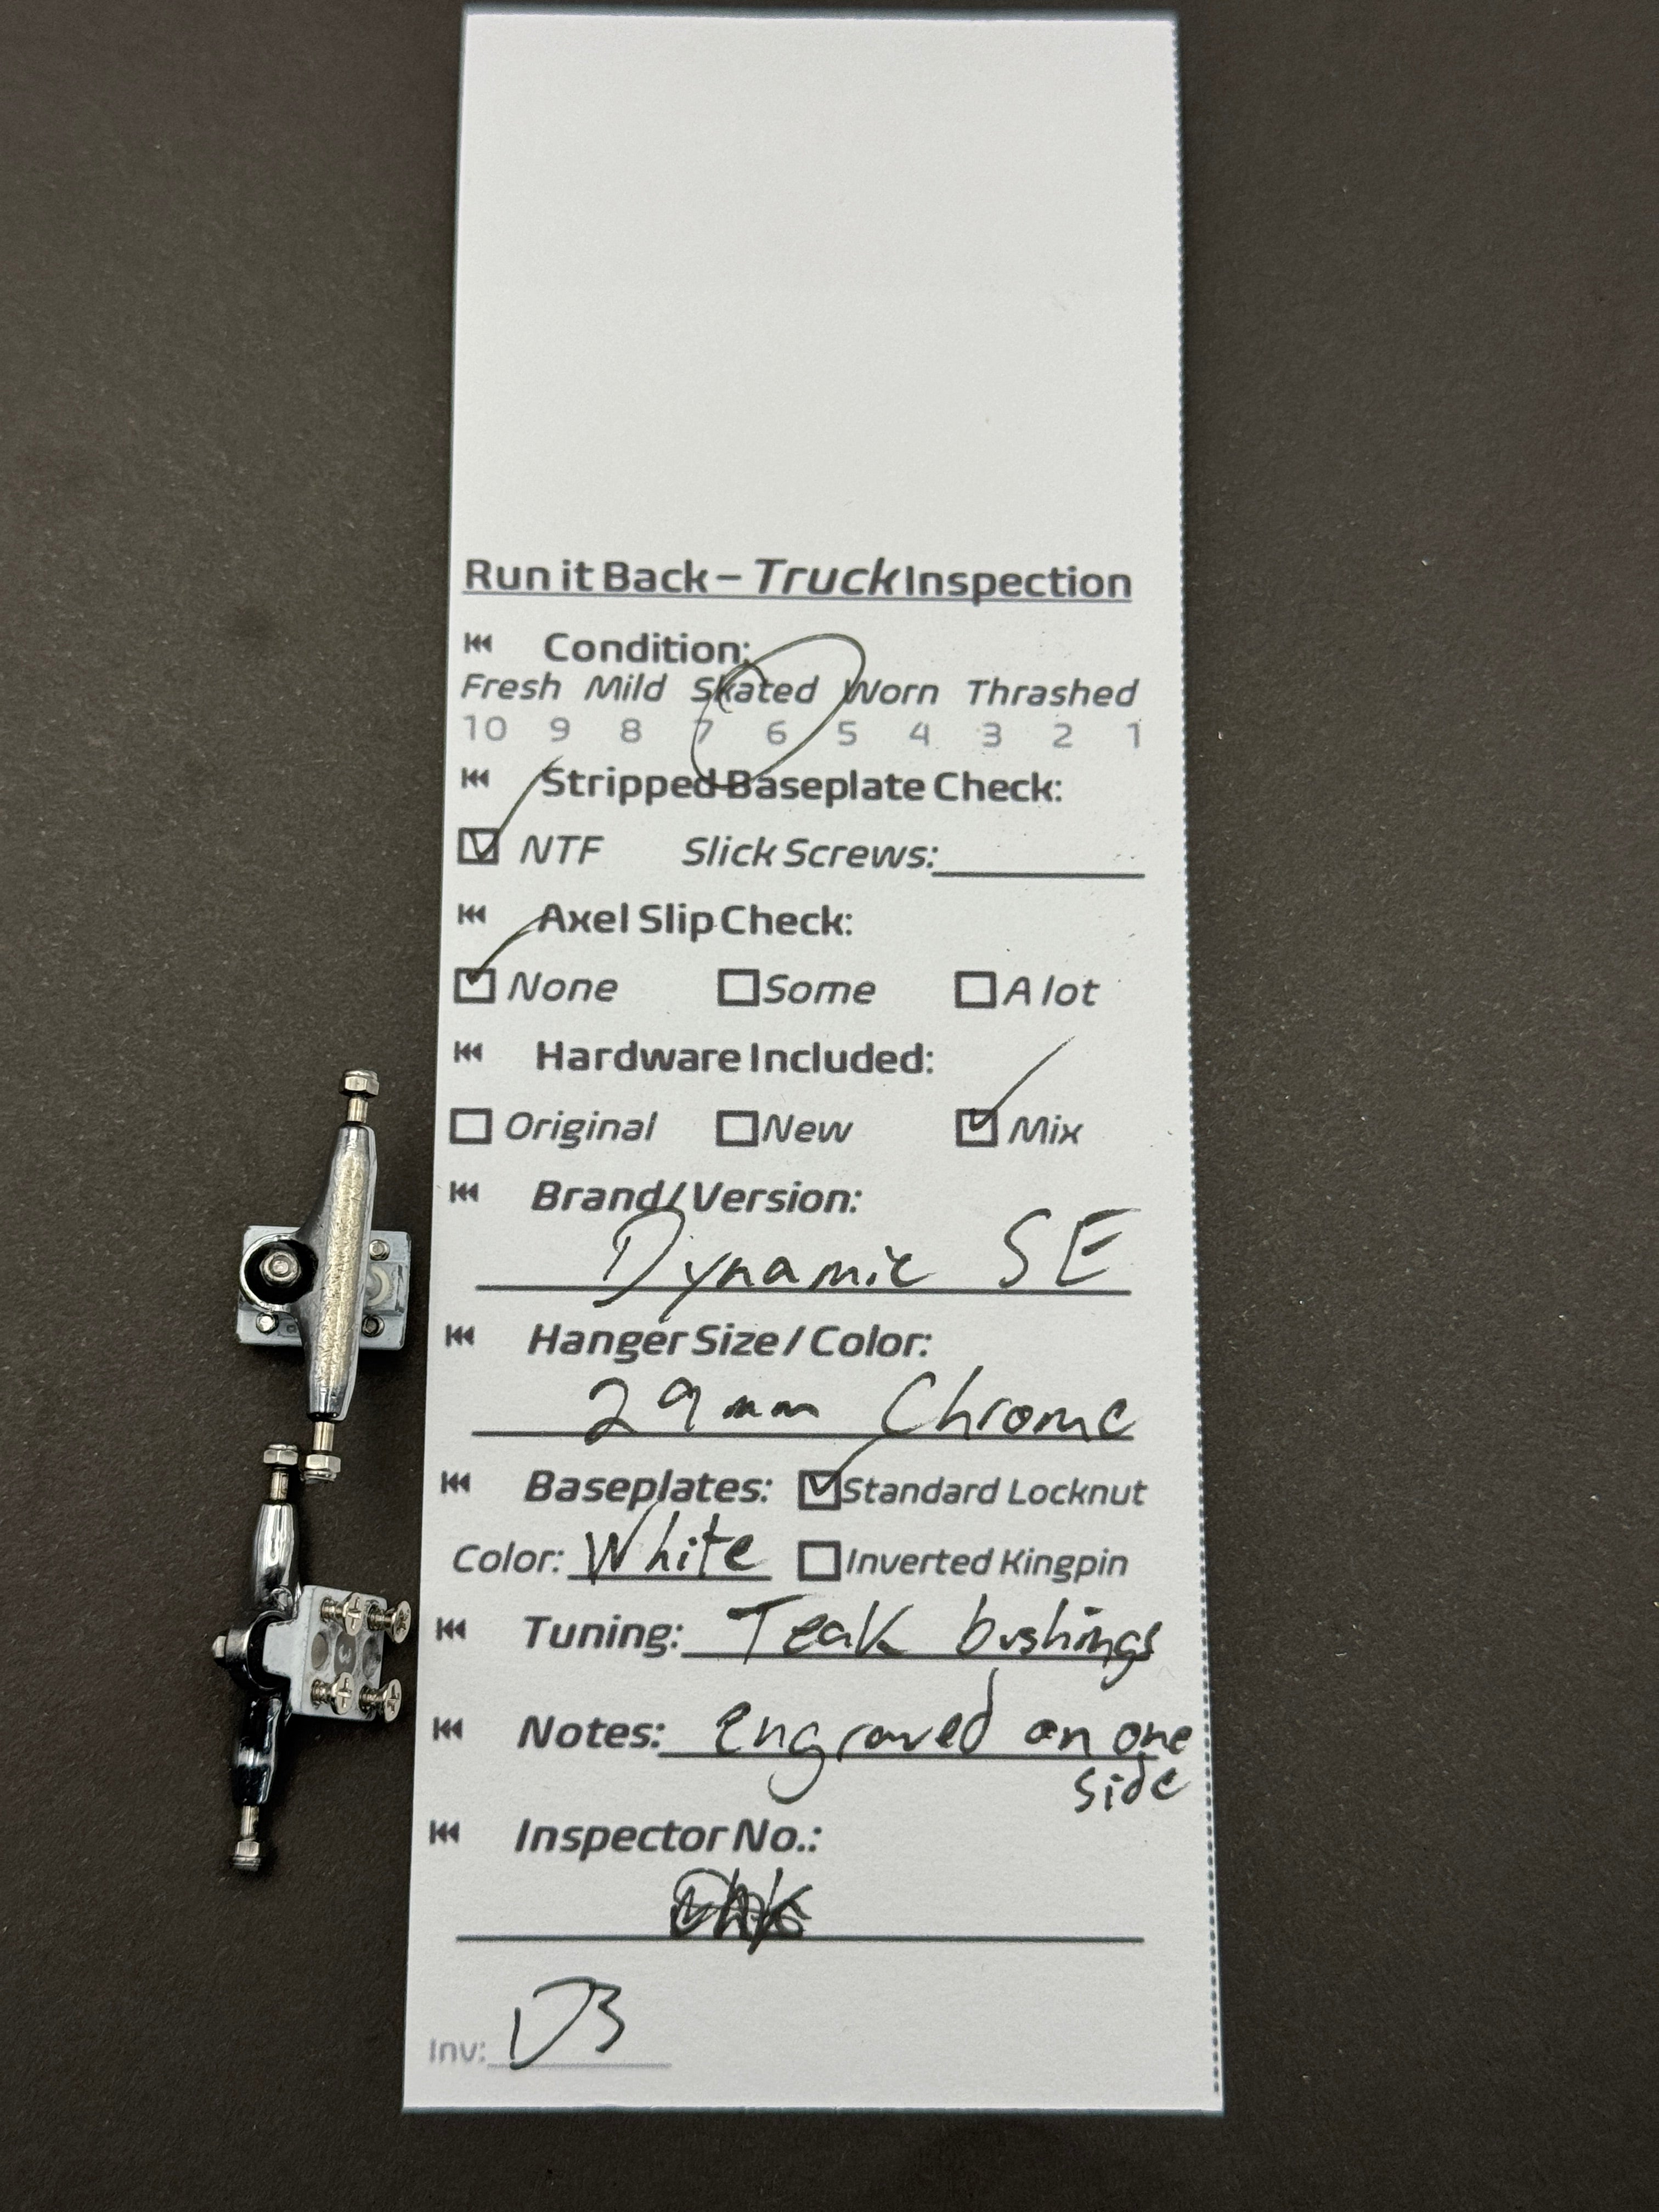 Run it Back – Truck Inspection
Condition:
Fresh Mild Skated Worn Thrashed
10 9 8 7 6 5 4 3 2 1
Stripped Baseplate Check:
NTF Slick Screws:
Axel Slip Check:
None Some A lot
Hardware Included:
Original New Mix
Brand/Version:
Dynamic SE
Hanger Size / Color:
29mm Chrome
Baseplates: Standard Locknut
Color: White Inverted Kingpin
Tuning: Teak bushings
Notes: engraved on one
side
Inspector No.:
Inv: D3
3